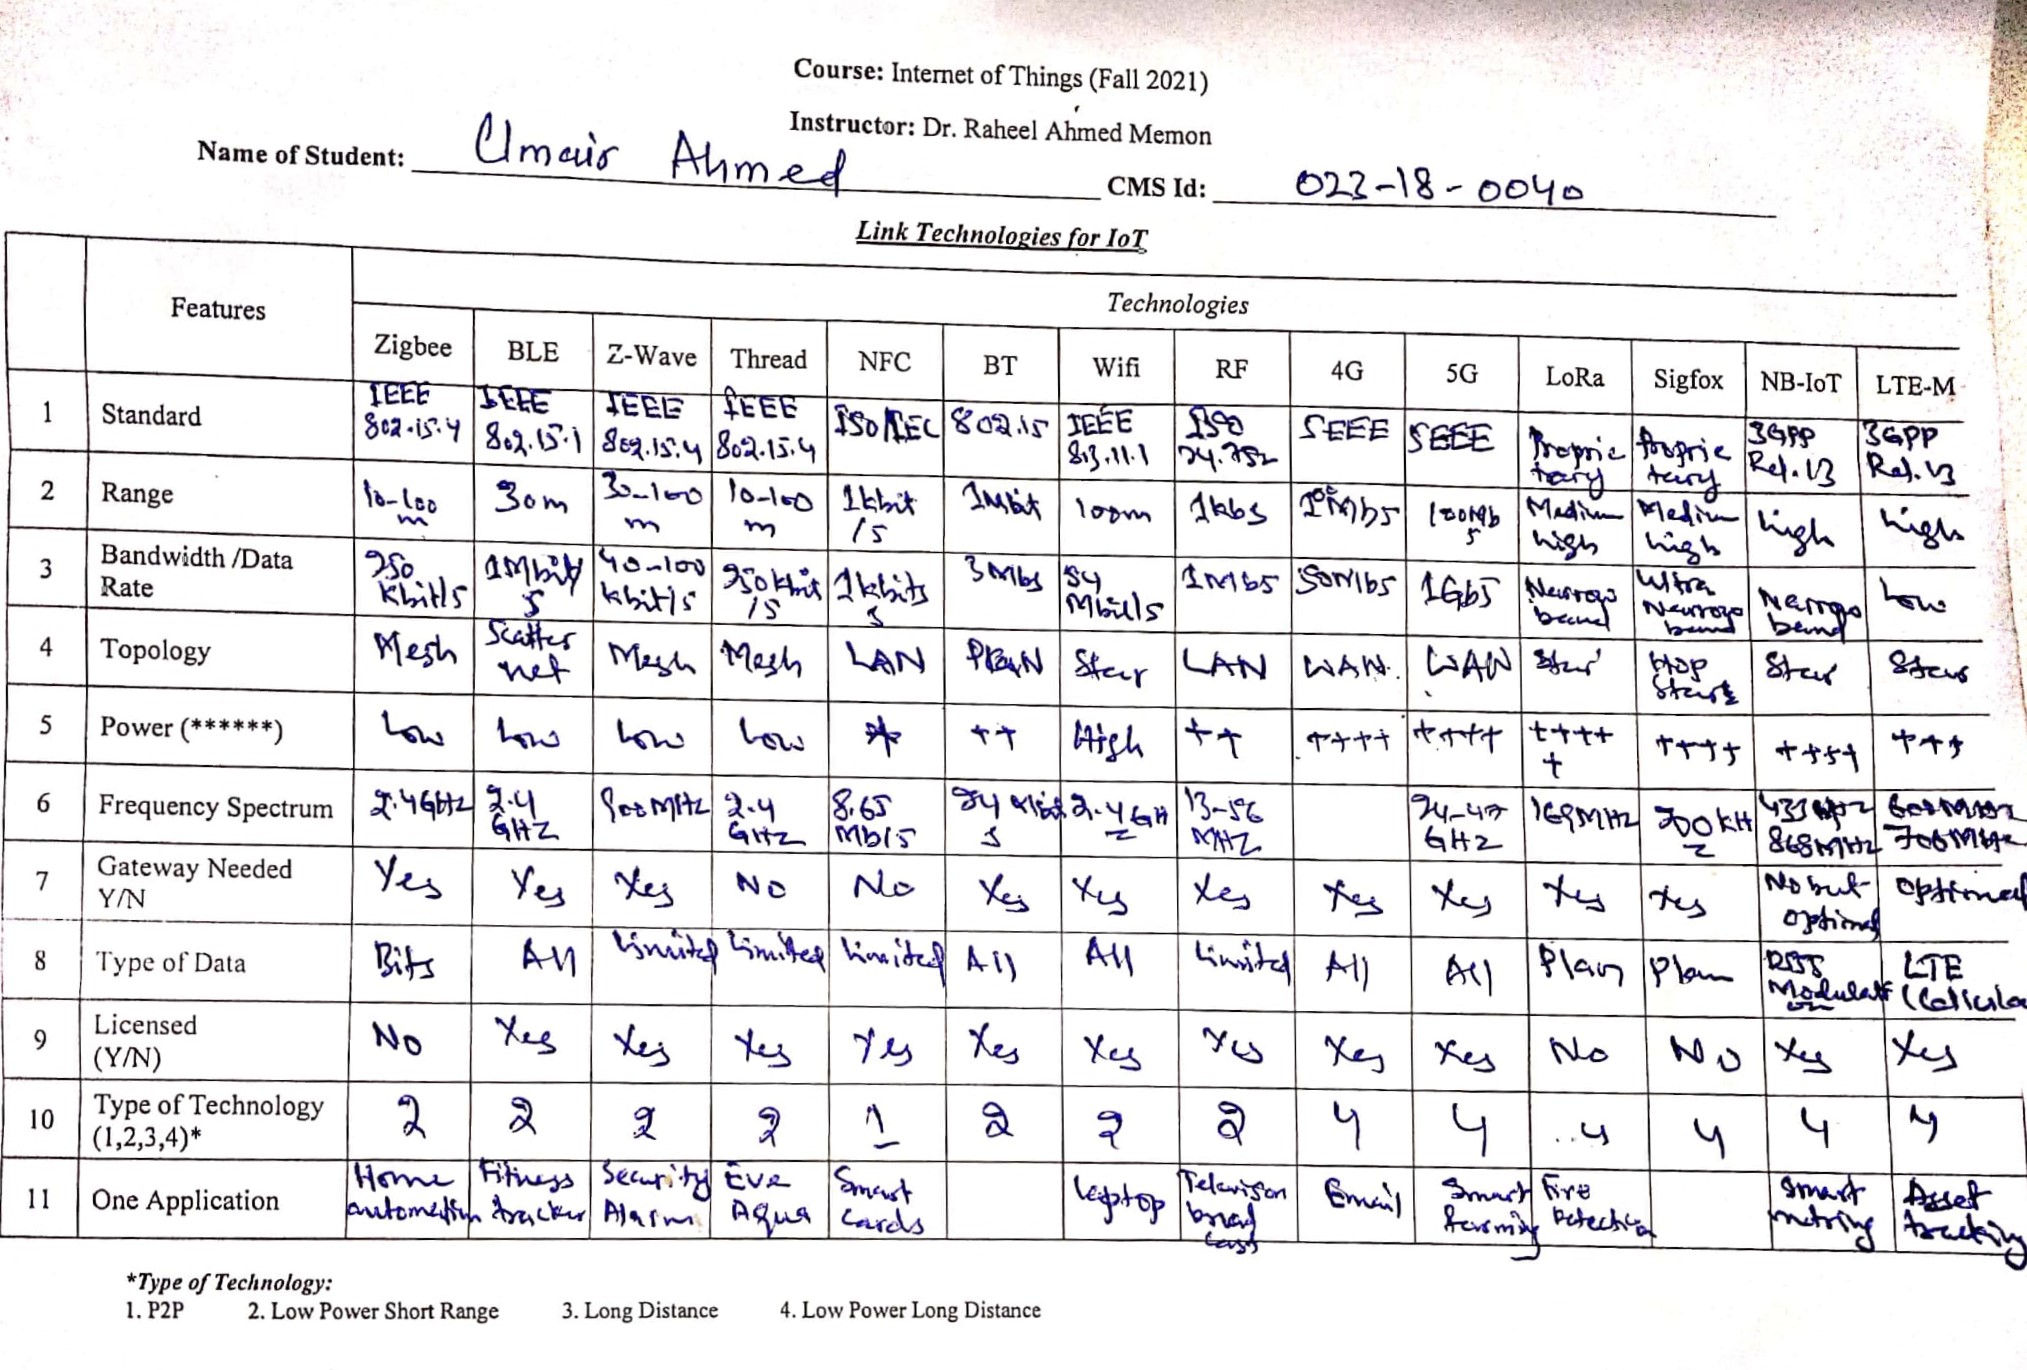 Course: Internet of Things (Fall 2021)
Instructor: Dr. Raheel Ahmed Memon
Name of Student: Umair Ahmed CMS Id: 023-18-0040
Link Technologies for IoT
Features Technologies
Zigbee BLE Z-Wave Thread NFC BT Wifi RF 4G 5G LoRa Sigfox NB-IoT LTE-M
1 Standard IEEE 802.15.4 IEEE 802.15.1 IEEE 802.15.4 IEEE 802.15.4 ISO/IEC 802.15 IEEE 813.11.1 ISO IEEE IEEE Proprietary Proprietary 3GPP Rel.13 3GPP Rel.13
2 Range 10-100 m 30m 30-100 m 10-100 m 1kbit/s 1Mbit 100m 1kbs 100Mbs Medium high Medium high high high
3 Bandwidth /Data Rate 250 kbit/s 1Mbit/s 40-100 kbit/s 250kbit/s 1kbits 3Mbs 54 Mbit/s 1Mbs 50Mbs 1Gbs Narrow band Ultra Narrow band Narrow band Low
4 Topology Mesh Scatter net Mesh Mesh LAN Star LAN WAN. WAN Star Star Star
5 Power (******) Low Low Low Low * ++ High ++ ++++ ++++ +++++ ++++ ++++ +++
6 Frequency Spectrum 2.4GHz 2.4 GHZ 900MHz 2.4 GHz 8.65 Mb/s 24 2.4GHz 13-56 MHZ 24-47 GHz 169MHz 200KHz 433 868MHz
7 Gateway Needed Y/N Yes Yes Yes No No Yes Yes Yes Yes Yes Yes Yes No but optional optional
8 Type of Data Bits All Limited Limited Limited All All Limited All All Plan Plan Modulation LTE
9 Licensed (Y/N) No Yes Yes Yes Yes Yes Yes Yes Yes Yes No No Yes Yes
10 Type of Technology (1,2,3,4)* 2 2 2 2 1 2 2 2 4 4 ..4 4 4 4
11 One Application Home automation Fitness tracker Security Alarm Eve Aqua Smart Cards Laptop Televison broad cast Email Smart farming Fire Detection Smart metring Asset tracking
*Type of Technology:
1. P2P 2. Low Power Short Range 3. Long Distance 4. Low Power Long Distance